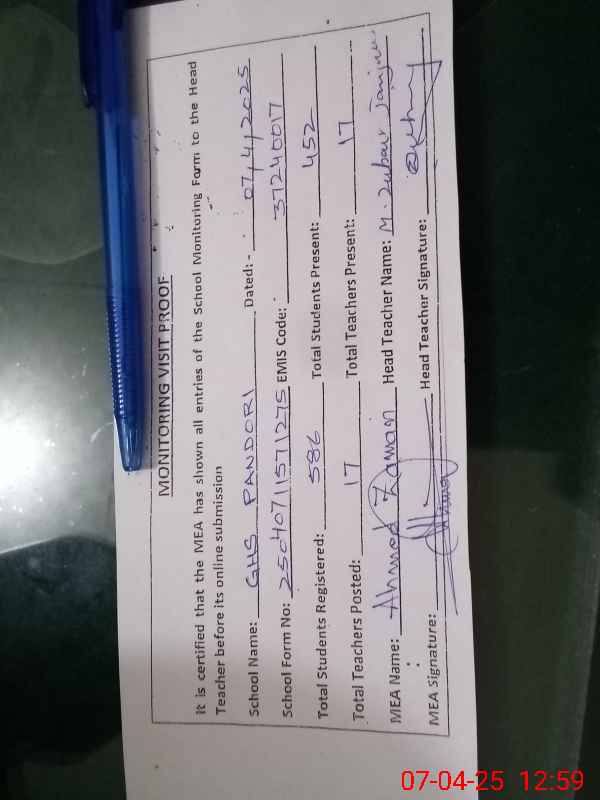 MONITORING VISIT PROOF
It is certified that the MEA has shown all entries of the School Monitoring Form to the Head
Teacher before its online submission
School Name: GHS PANDORI Dated:- 07/4/2025
School Form No: 25040711571275 EMIS Code: 37240017
Total Students Registered: 586 Total Students Present: 452
Total Teachers Posted: 17 Total Teachers Present: 17
MEA Name: Ahmed Zaman Head Teacher Name: M. Zubair Janjua
MEA Signature: Head Teacher Signature:
07-04-25 12:59